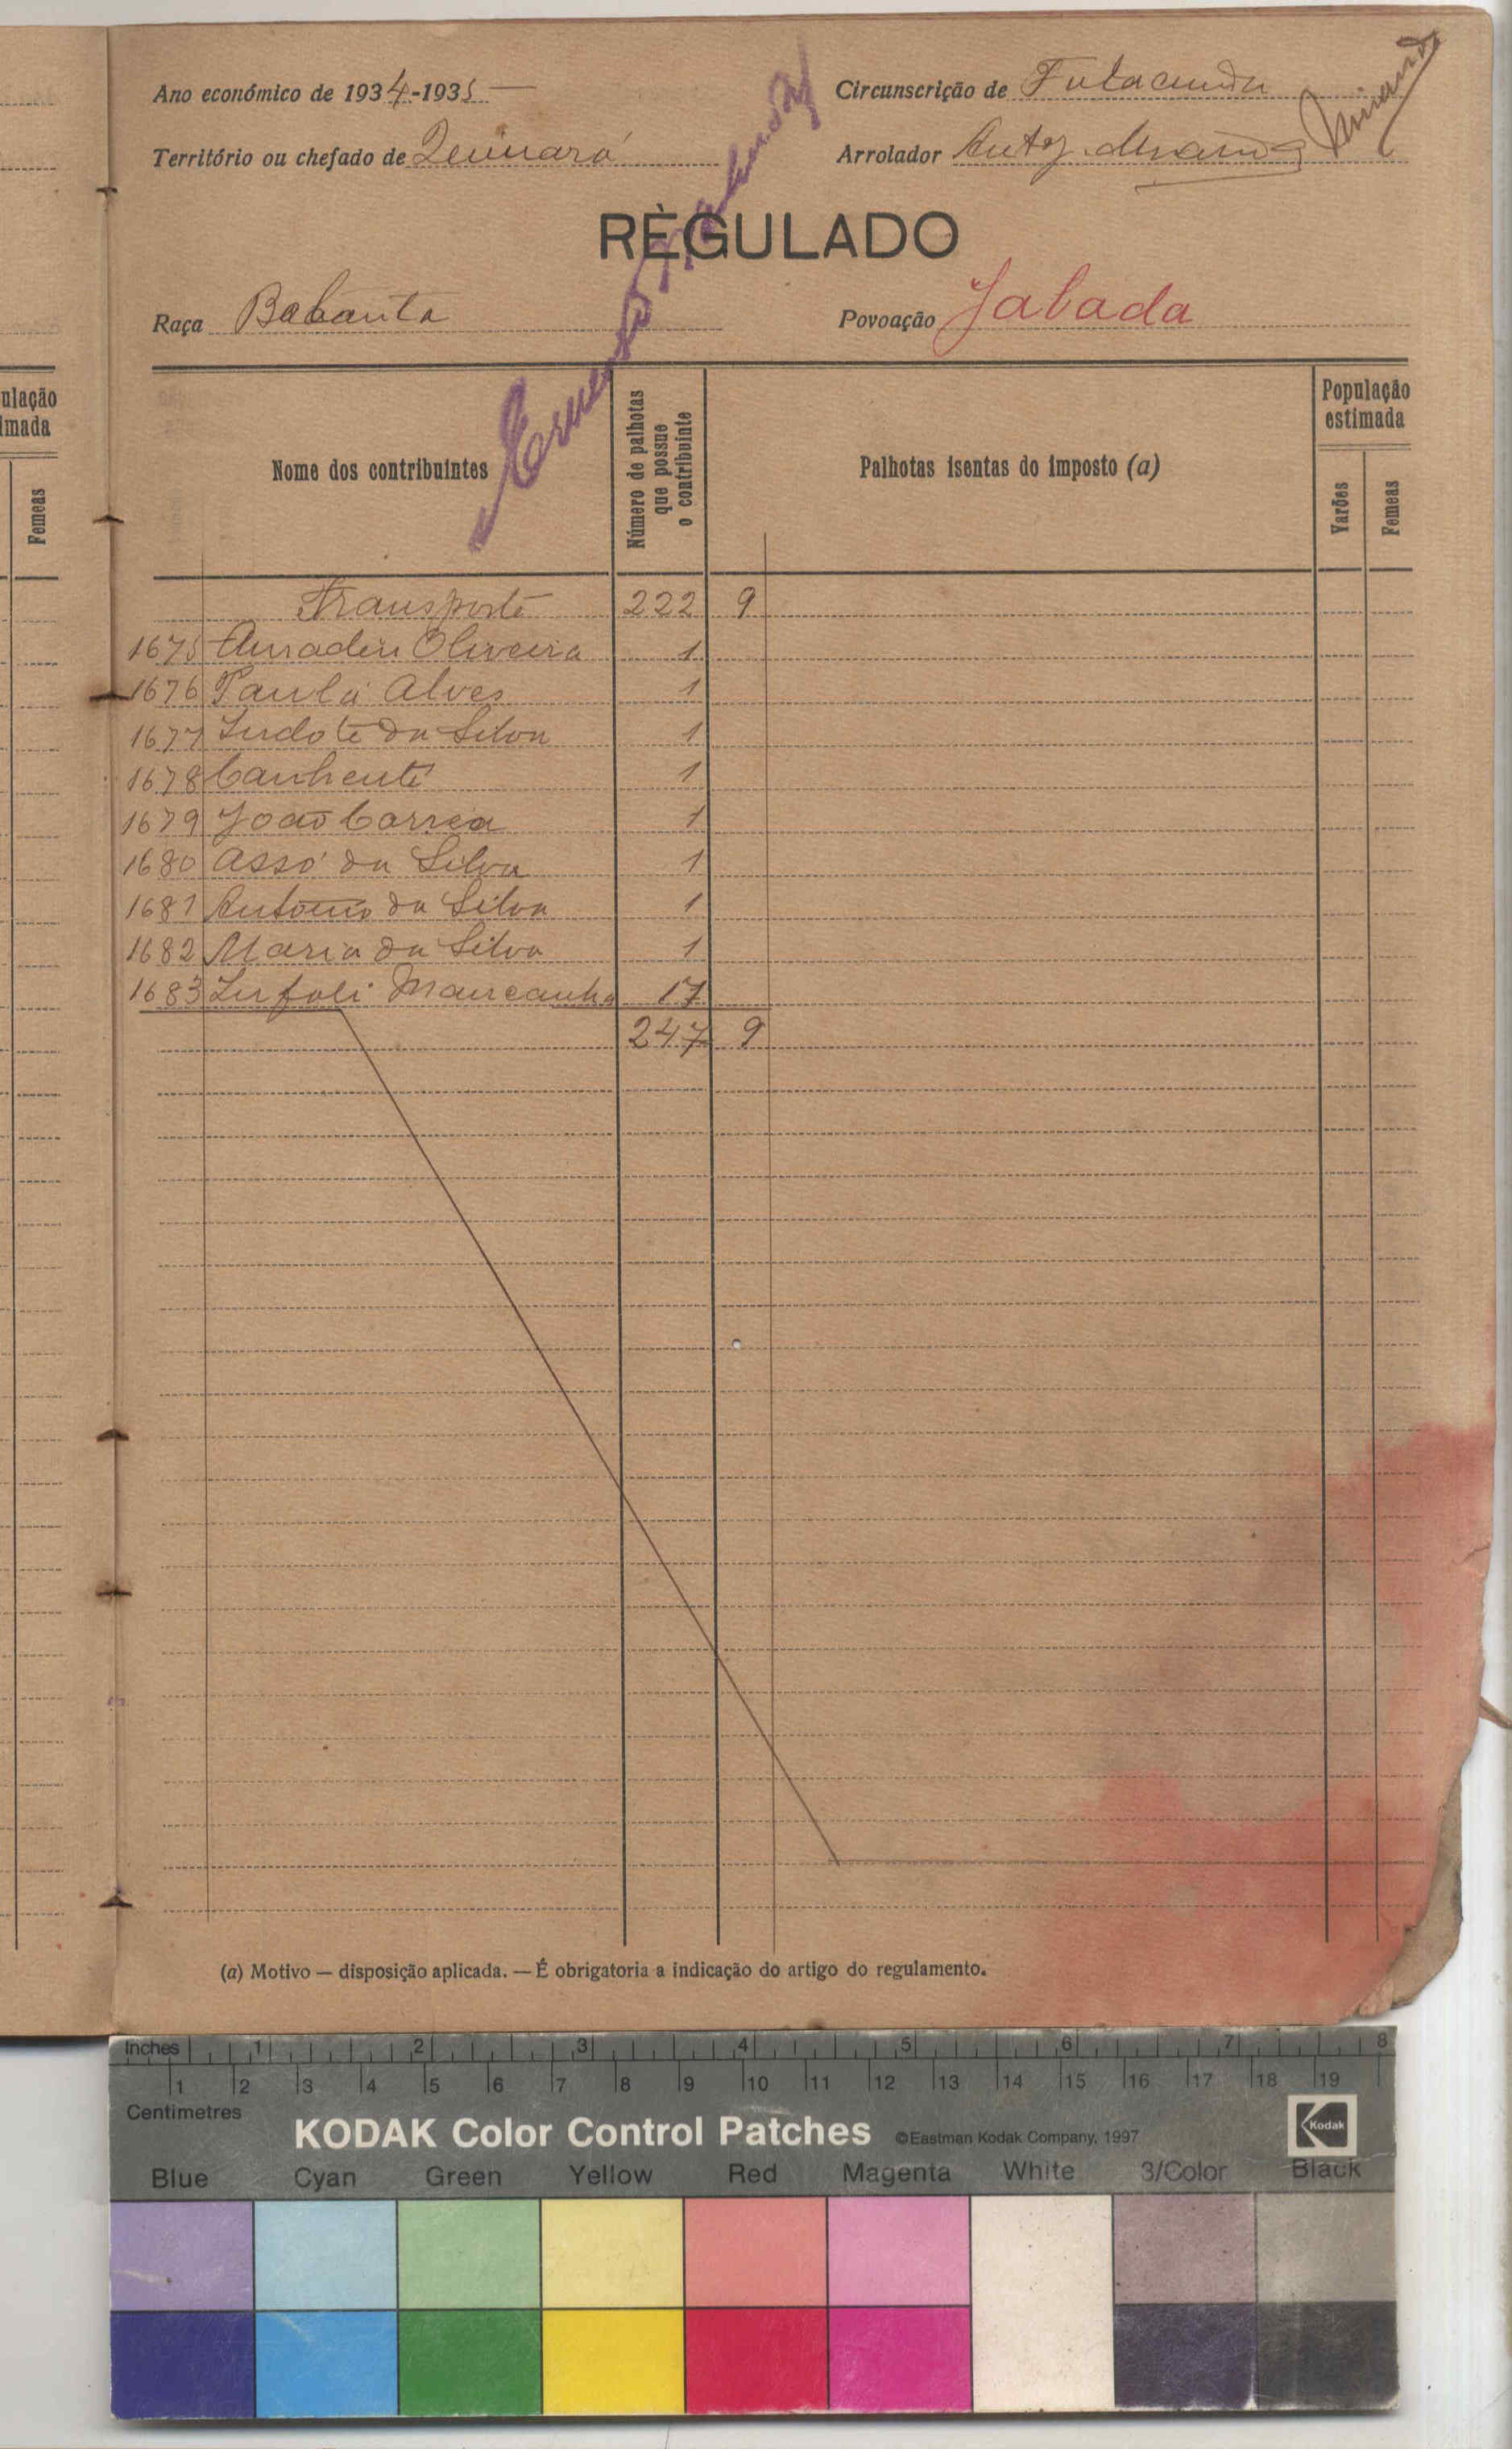 Ano económico de 1934-1935
Circunscrição de Fulacunda
Território ou chefado de Quinará
Arrolador
RÈGULADO
Raça Babanta
Povoação Jabada
ulação
imada
Femeas
Nome dos contribuintes
Número de palhotas
que possue
o contribuinte
Palhotas isentas do imposto (a)
População
estimada
Varões
Femeas
Transporte 222 9
1675 Amadeu Oliveira 1
1676 Paula Alves 1
1677 da Silva 1
1678 Canhenté 1
1679 João Correa 1
1680 Assó da Silva 1
1681 Antonio da Silva 1
1682 Maria da Silva 1
1683 Mancanha 17
247 9
(a) Motivo — disposição aplicada. — É obrigatoria a indicação do artigo do regulamento.
Inches 1 2 3 4 5 6 7 8
1 2 3 4 5 6 7 8 9 10 11 12 13 14 15 16 17 18 19
Centimetres
KODAK Color Control Patches ©Eastman Kodak Company, 1997 Kodak
Blue Cyan Green Yellow Red Magenta White 3/Color Black